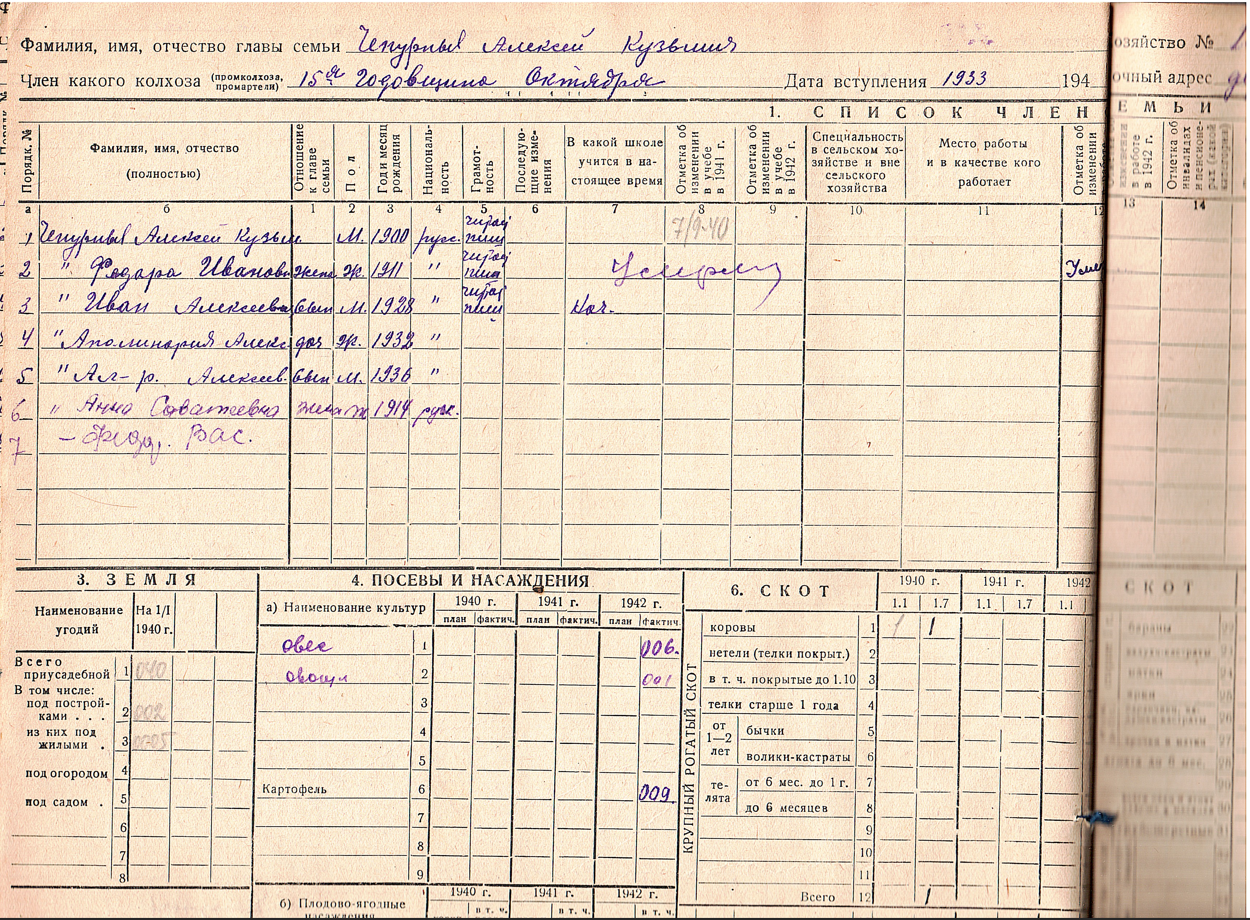 Фамилия, имя, отчество главы семьи Чепурных Алексей Кузьмич
озяйство №
Член какого колхоза (промколхоза, промартели) 15ая Годовщина Октября Дата вступления 1933 194
очный адрес
1. СПИСОК ЧЛЕН
ЕМЬИ
Порядк. № Фамилия, имя, отчество (полностью) Отношение к главе семьи Пол Год и месяц рождения Националь-ность Грамот-ность Последую-щие изме-нения В какой школе учится в на-стоящее время Отметка об изменении в учебе в 1941 г. Отметка об изменении в учебе в 1942 г. Специальность в сельском хо-зяйстве и вне сельского хозяйства Место работы и в качестве кого работает Отметка об изменении
в работе в 1942 г. Отметка об инвалидах и пенсионе-рах (какой категории)
а б 1 2 3 4 5 6 7 8 9 10 11 12 13 14
1 Чепурных Алексей Кузьм. М. 1900 русс. читай пиш 7/9-40
2 " Федора Ивановн жена ж. 1911 "
3 " Иван Алексеевич сын М. 1928 " Нач.
4 " Аполинария Алекс. доч ж. 1932 "
5 " Ал-р. Алексеев. сын М. 1936 "
6 " Анна Саватеевна жена ж 1914 русс.
7 - Вас.
3. ЗЕМЛЯ
Наименование угодий На 1/I 1940 г.
Всего приусадебной 1 040
В том числе:
под построй-ками . . . 2 002
из них под жилыми . 3
под огородом 4
под садом . 5
6
7
8
4. ПОСЕВЫ И НАСАЖДЕНИЯ
а) Наименование культур 1940 г. 1941 г. 1942 г.
план фактич. план фактич. план фактич.
овес 1 006.
овощи 2 001
3
4
5
Картофель 6 009
7
8
9
б) Плодово-ягодные насаждения 1940 г. 1941 г. 1942 г.
в т. ч. в т. ч. в т. ч.
6. СКОТ
1940 г. 1941 г. 1942
1.1 1.7 1.1 1.7 1.1
КРУПНЫЙ РОГАТЫЙ СКОТ
коровы 1 1 1
нетели (телки покрыт.) 2
в т. ч. покрытые до 1.10 3
телки старше 1 года 4
от 1—2 лет бычки 5
волики-кастраты 6
те-лята от 6 мес. до 1 г. 7
до 6 месяцев 8
9
10
11
Всего 12 1
СКОТ